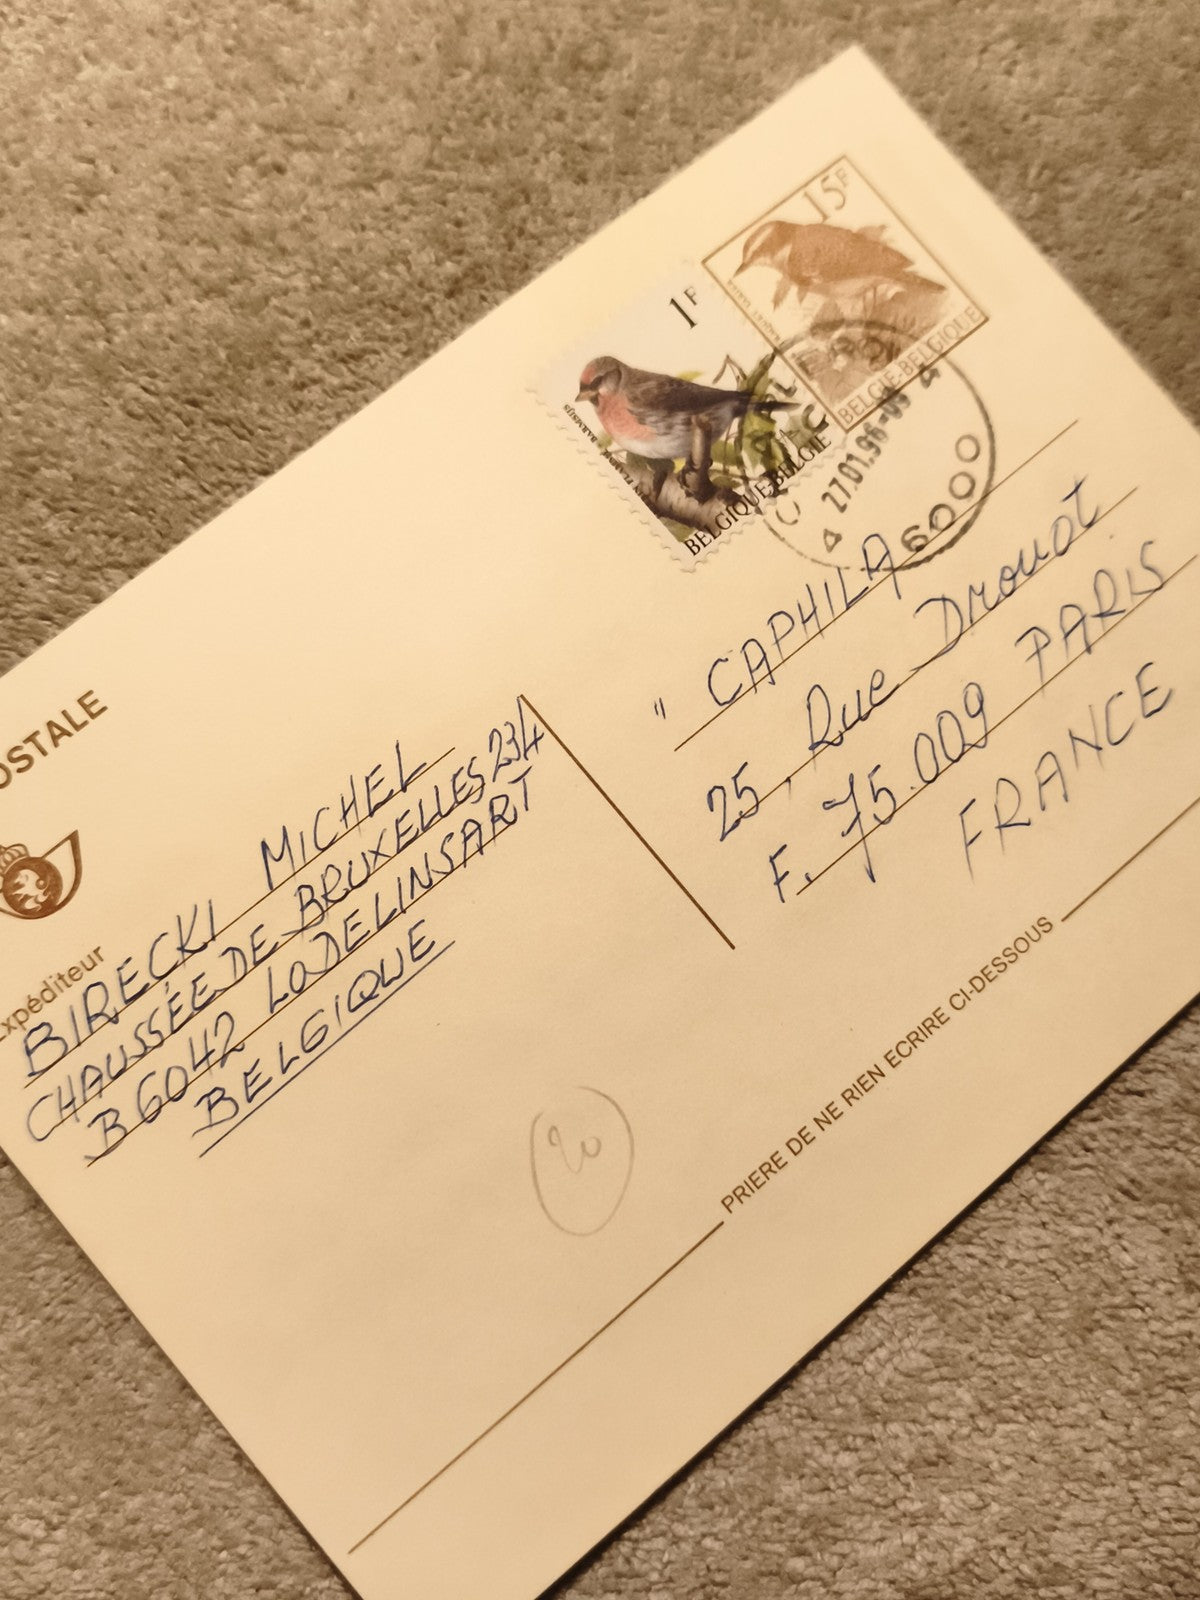 15F
BELGIE-BELGIQUE
1F
BARMSIJS
BELGIQUE-BELGIE
27.01.96-09
6000
OSTALE
Expéditeur
BIRECKI MICHEL
CHAUSSÉE DE BRUXELLES 234
B6042 LODELINSART
BELGIQUE
" CAPHILA
25, Rue Drouot
F. 75.009 PARIS
FRANCE
20
PRIERE DE NE RIEN ECRIRE CI-DESSOUS